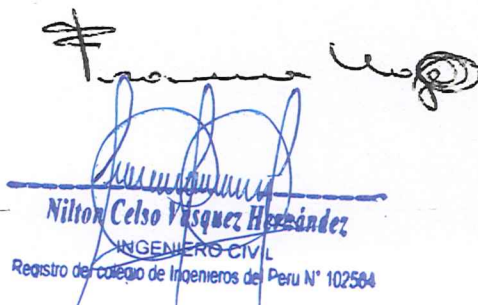 Nilton Celso Vasquez Hernández
INGENIERO CIVIL
Registro del colegio de Ingenieros del Peru N° 102584